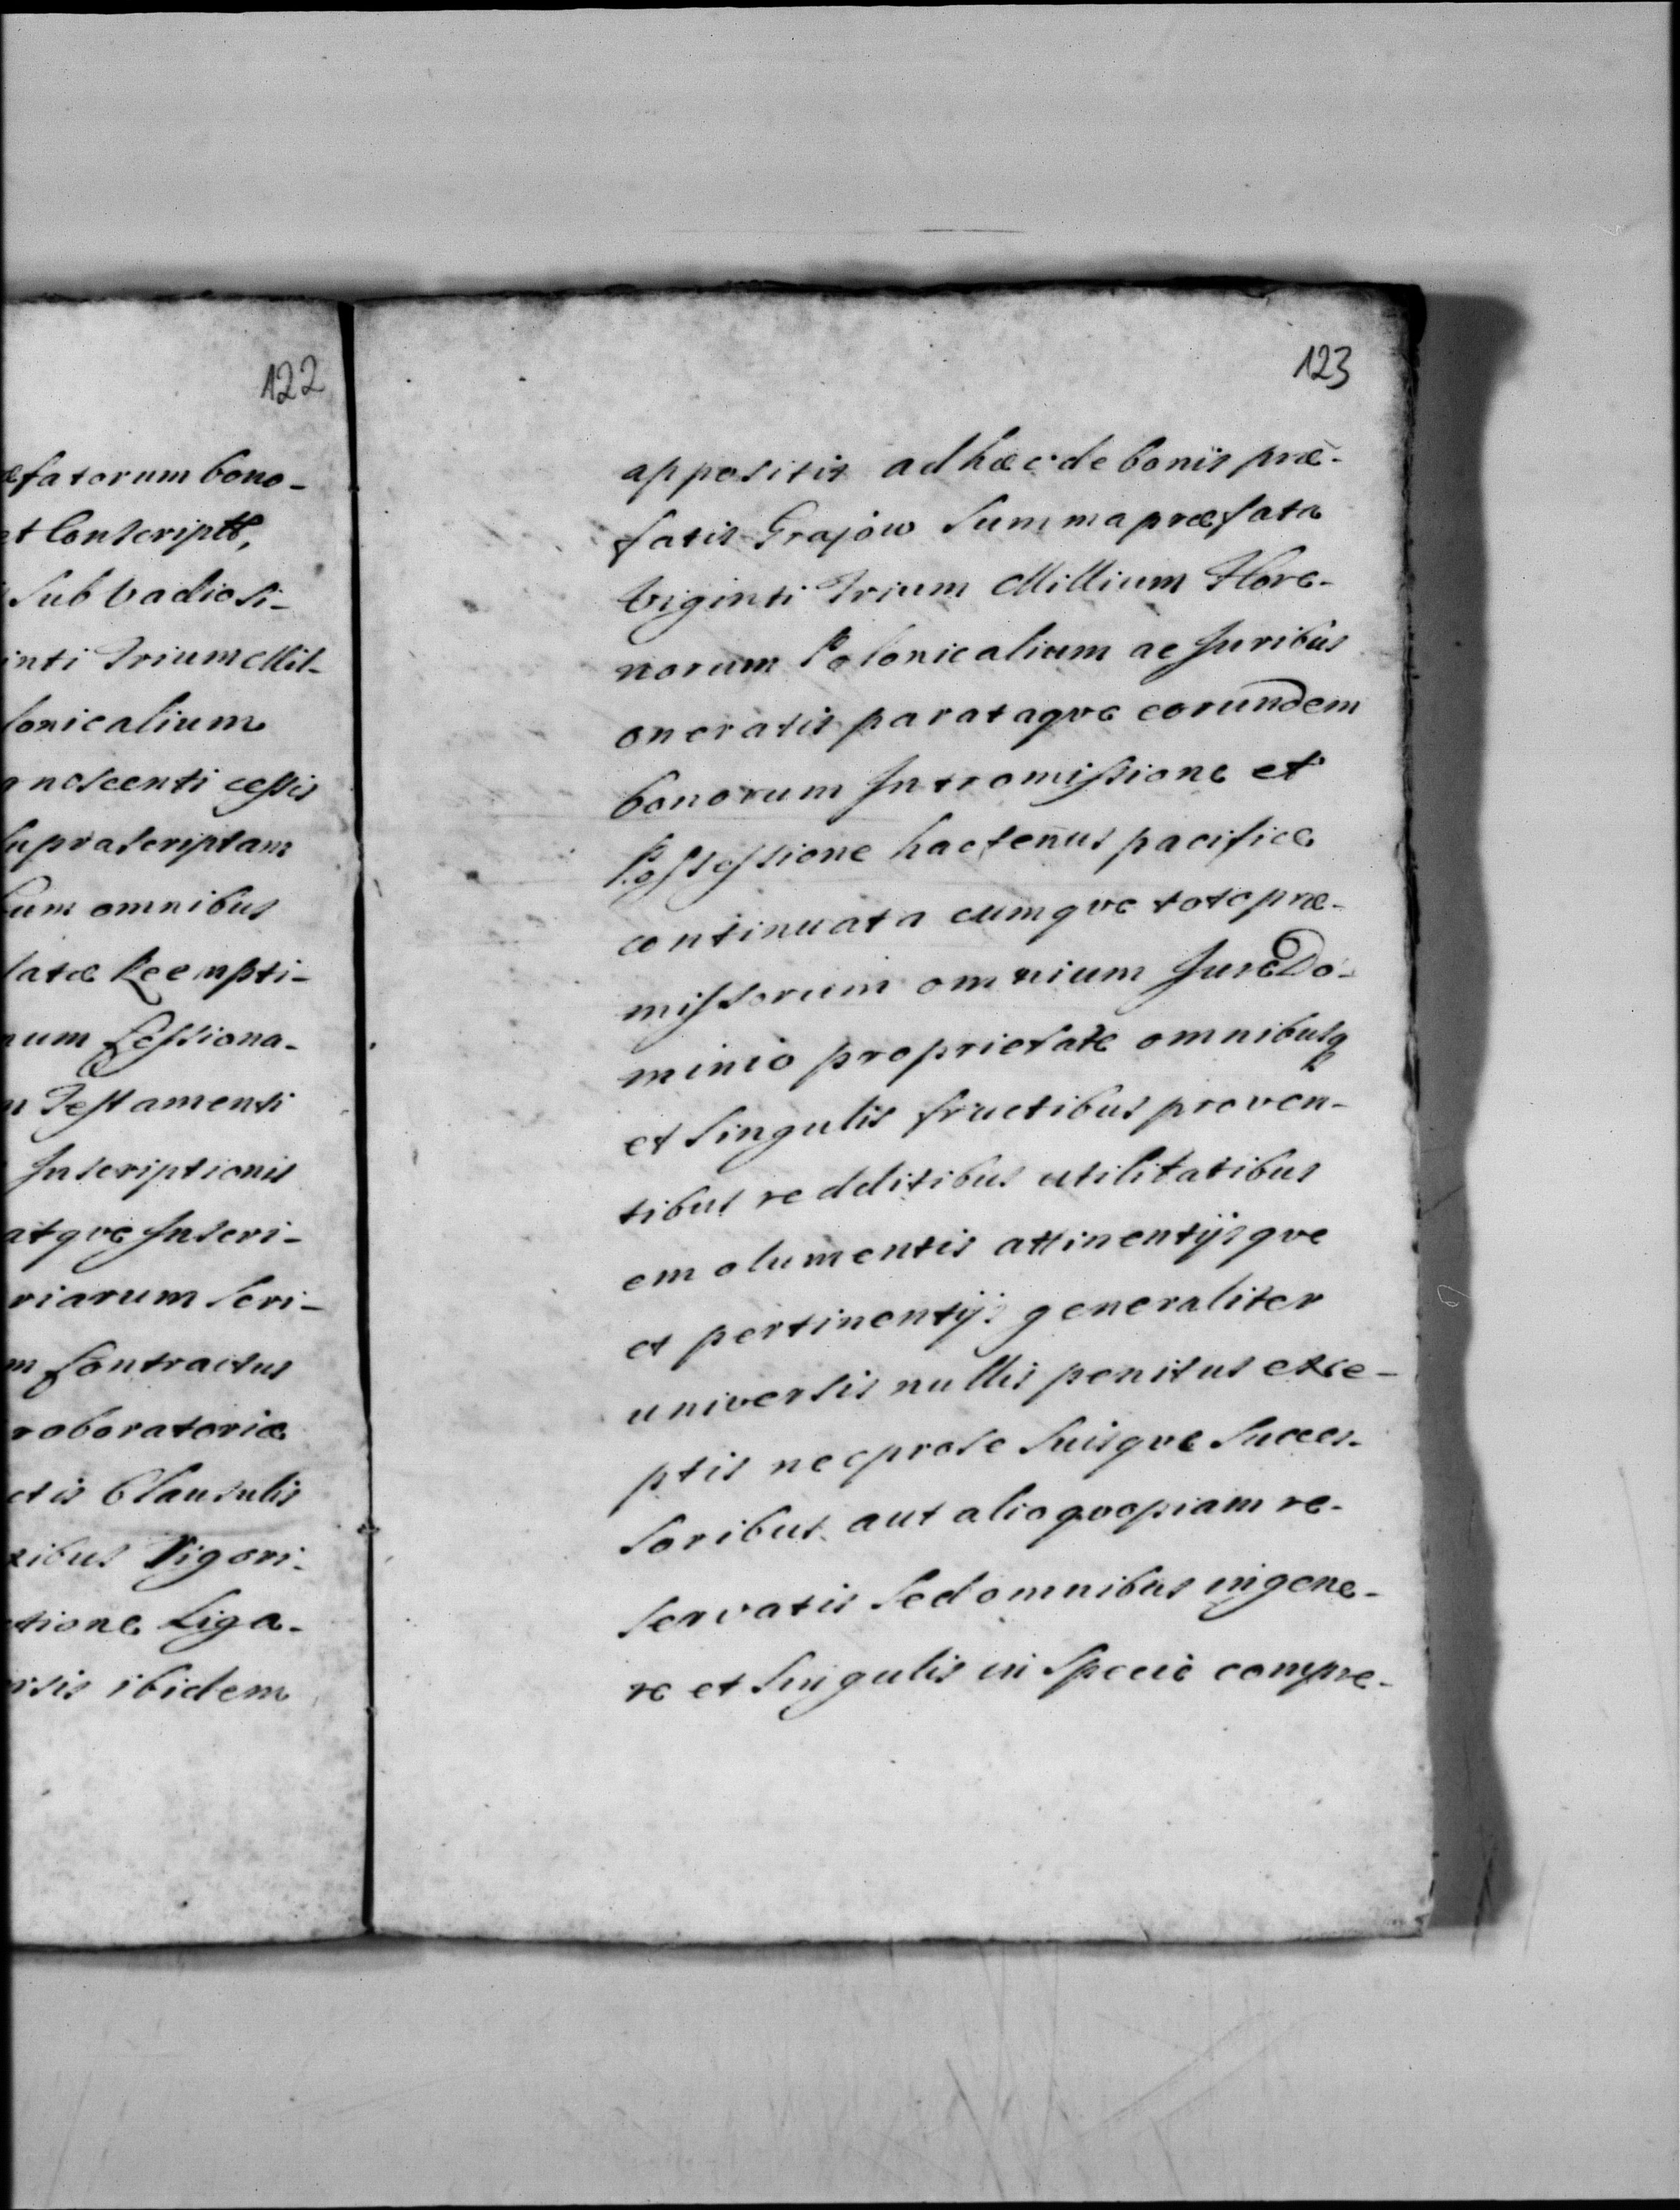 122
æfatorum bono-
et Conscriptæ,
sub vadio si-
inti Trium Mil-
lonicalium
gnoscenti cessis
supra scriptam
cum omnibus
latæ Reempti-
num Cessiona-
m Testamenti
Inscriptionis
atqve Inscri-
riarum Scri-
m Contractus
roboratoriæ
ctis Clausulis
Vigori-
ctione Liga-
ibidem
123
appositis ad hæc de bonis præ-
fatis Grajow Summa præfata
Viginti Trium Millium Flore-
norum Polonicalium ac Juribus
oneratis parataqve eorundem
bonorum Intromissione et
Possessione hactenus pacifice
continuata cumqve toto præ-
missorum omnium Jure Do-
minio proprietate omnibusq
et Singulis fructibus proven-
tibus redditibus utilitatibus
emolumentis attinentijsqve
et pertinentijs generaliter
universis nullis penitus exce-
ptis nec pro se Suisqve Succes-
soribus aut alio qvopiam re-
servatis Sed omnibus in gene-
re et Singulis in Specie compre-